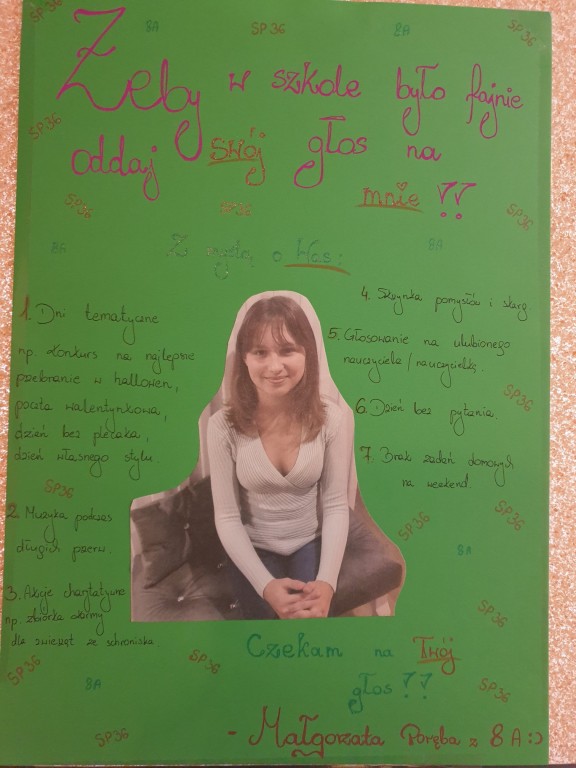 SP36 8A SP36 8A SP36
Żeby w szkole było fajnie
SP36
oddaj swój głos na
mnie !!
SP36 SP36 SP36
8A Z myślą o Was: 8A
1. Dni tematyczne
np. konkurs na najlepsze
przebranie w hallowen,
poczta walentynkowa,
dzień bez plecaka,
dzień własnego stylu
SP36
2. Muzyka podczas
długich przerw.
3. Akcje charytatywne
np. zbiórka karmy
dla zwierząt ze schroniska.
4. Skrzynka pomysłów i skarg
5. Głosowanie na ulubionego
nauczyciela/nauczycielkę.
SP36
6. Dzień bez pytania
7. Brak zadań domowych
na weekend.
SP36 SP36
8A
SP36
Czekam na Twój
głos !!
SP36 SP36 SP36
8A
SP36
- Małgorzata Poręba z 8A :)